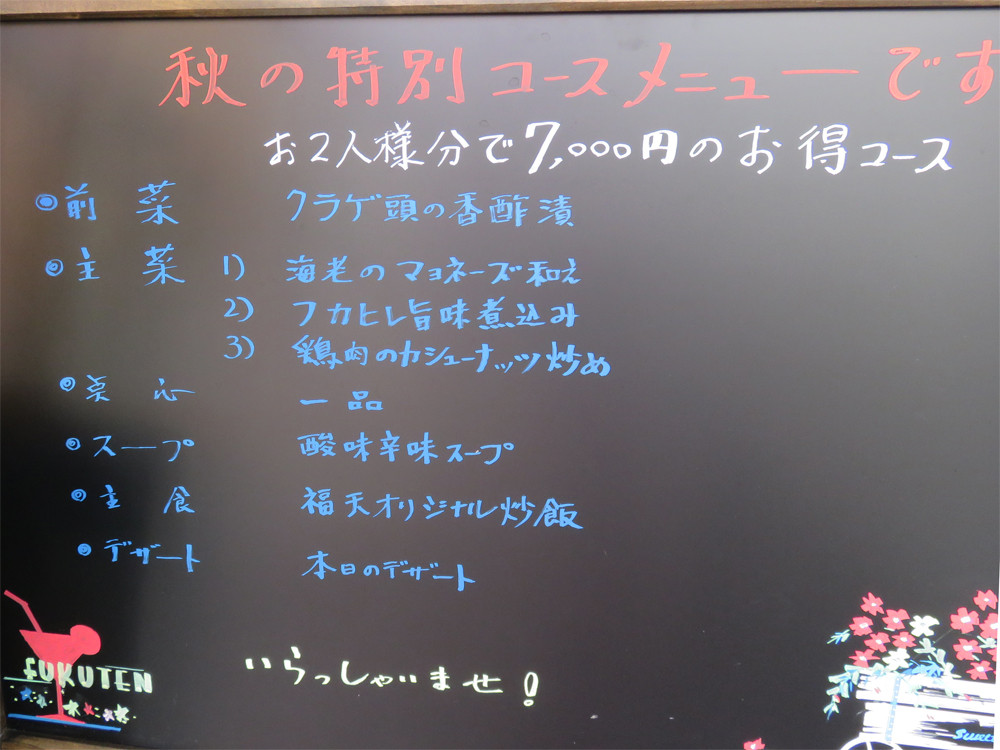 秋の特別コースメニューです
お2人様分で7,000円のお得コース
◎前菜 クラゲ頭の香酢漬
◎主菜 1) 海老のマヨネーズ和え
2) フカヒレ旨味煮込み
3) 鶏肉のカシューナッツ炒め
◎点心 一品
◎スープ 酸味辛味スープ
◎主食 福天オリジナル炒飯
◎デザート 本日のデザート
いらっしゃいませ!
FUKUTEN